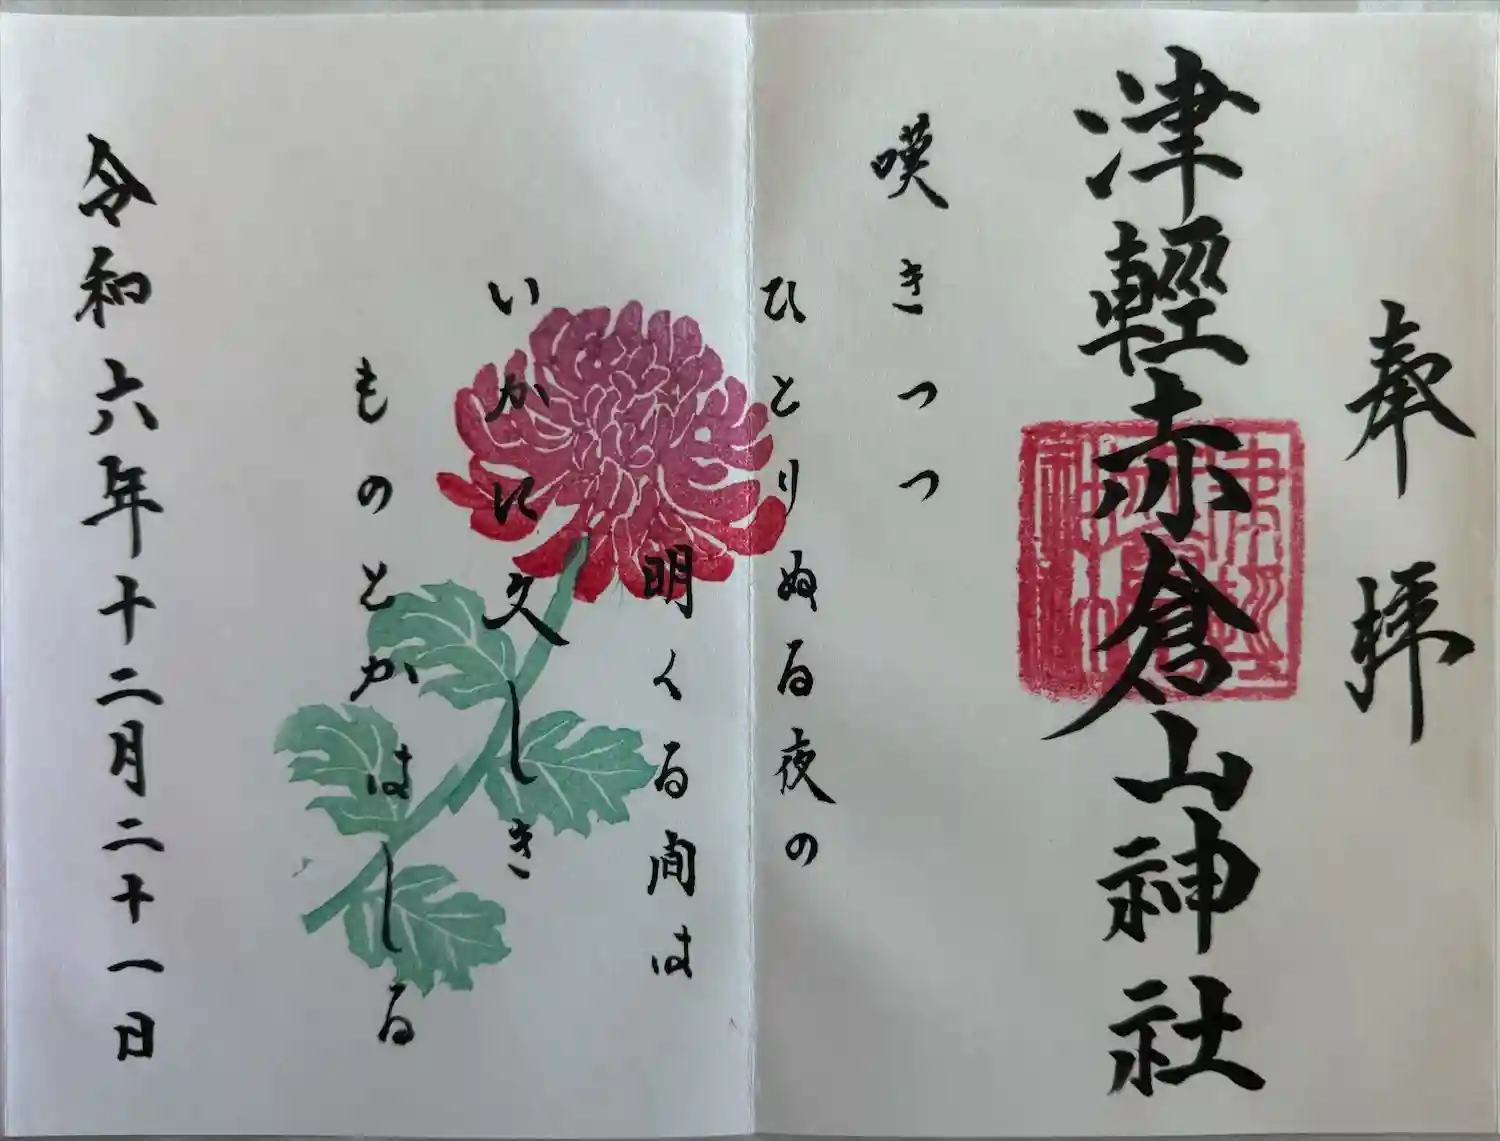 奉拝
津輕赤倉山神社
嘆きつつ
ひとりぬる夜の
明くる間は
いかに久しき
ものとかはしる
令和六年十二月二十一日